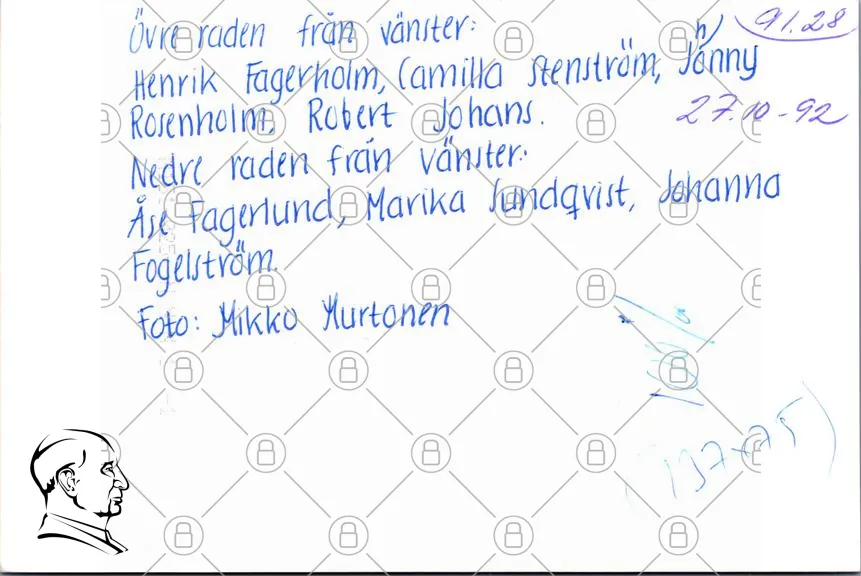 Övre raden från vänster:
91.28
Henrik Fagerholm, Camilla Stenström, Jonny
h)
Rosenholm, Robert Johans.
27.10-92
Nedre raden från vänster:
Åse Fagerlund, Marika Sundqvist, Johanna
Fogelström.
Foto: Mikko Hurtonen
(137x75)